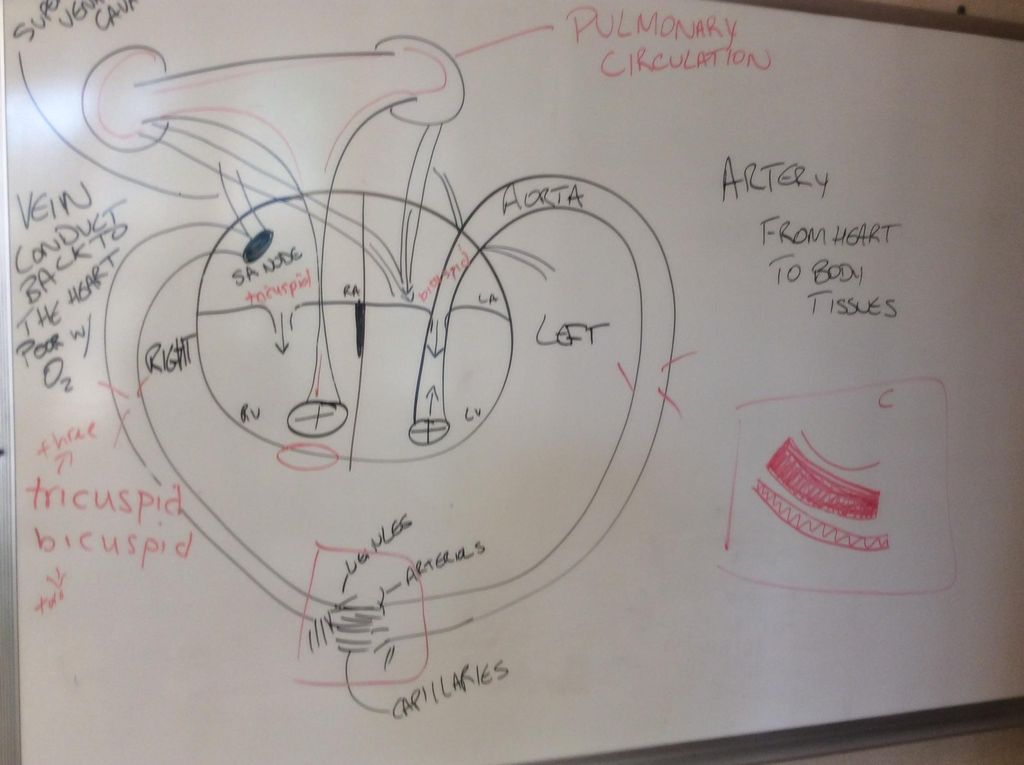 SUPE
VENA
CAVA
PULMONARY
CIRCULATION
VEIN
CONDUCT
BACK TO
THE HEART
POOR W/
O2
AORTA
ARTERY
FROM HEART
TO BODY
TISSUES
SA NODE
tricuspid
bicuspid
RA
LA
RIGHT
LEFT
RV
LV
three
tricuspid
bicuspid
two
C
VENULES
ARTERIOLS
CAPILLARIES